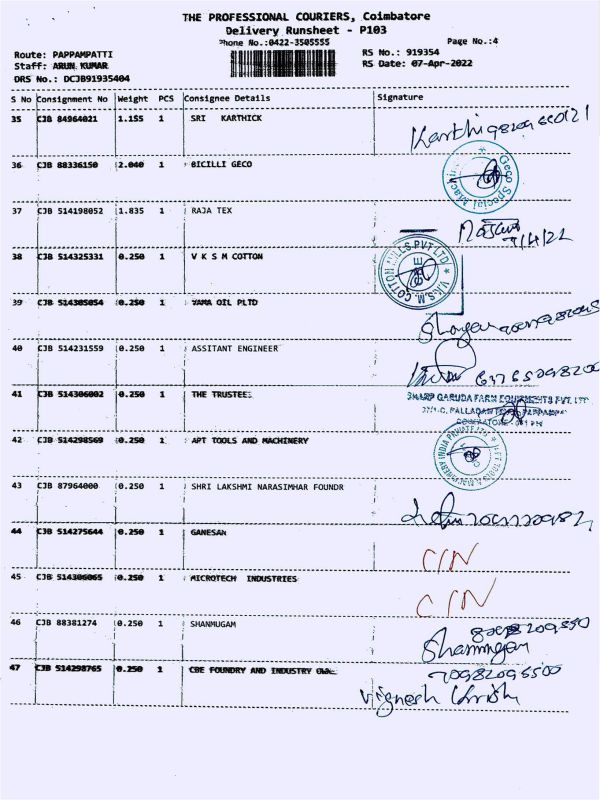 THE PROFESSIONAL COURIERS, Coimbatore
Delivery Runsheet - P103
Phone No.:0422-3505555
Page No.:4
Route: PAPPAMPATTI
RS No.: 919354
Staff: ARUN KUMAR
RS Date: 07-Apr-2022
DRS No.: DCJB91935404
S No Consignment No Weight PCS Consignee Details Signature
35 CJB 84964021 1.155 1 SRI KARTHICK
36 CJB 88336150 2.040 1 BICILLI GECO
Geco Special Machin
37 CJB 514198052 1.835 1 RAJA TEX
7/4/22
38 CJB 514325331 0.250 1 V K S M COTTON
V.K.S.M. COTTON MILLS PVT LTD
39 CJB 514305054 0.250 1 VAMA OIL PLTD
40 CJB 514231559 0.250 1 ASSITANT ENGINEER
41 CJB 514306002 0.250 1 THE TRUSTEE
SHARP GARUDA FARM EQUIPMENTS PVT. LTD
42 CJB 514298569 0.250 1 APT TOOLS AND MACHINERY
43 CJB 87964000 0.250 1 SHRI LAKSHMI NARASIMHAR FOUNDR
44 CJB 514275644 0.250 1 GANESAN
C/N
45 CJB 514306065 0.250 1 MICROTECH INDUSTRIES
C/N
46 CJB 88381274 0.250 1 SHANMUGAM
Shanmugam
47 CJB 514298765 0.250 1 CBE FOUNDRY AND INDUSTRY OWN
Vignesh